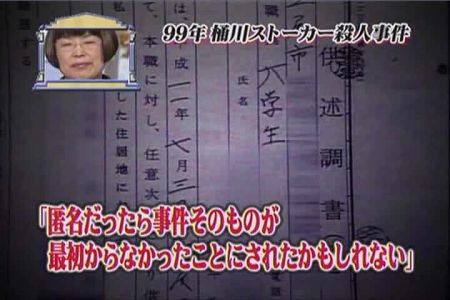 99年 桶川ストーカー殺人事件
供述調書
市
大学生
氏名
成一一年七月三
て、本職に対し、任意次
した住居地に
「匿名だったら事件そのものが
最初からなかったことにされたかもしれない」